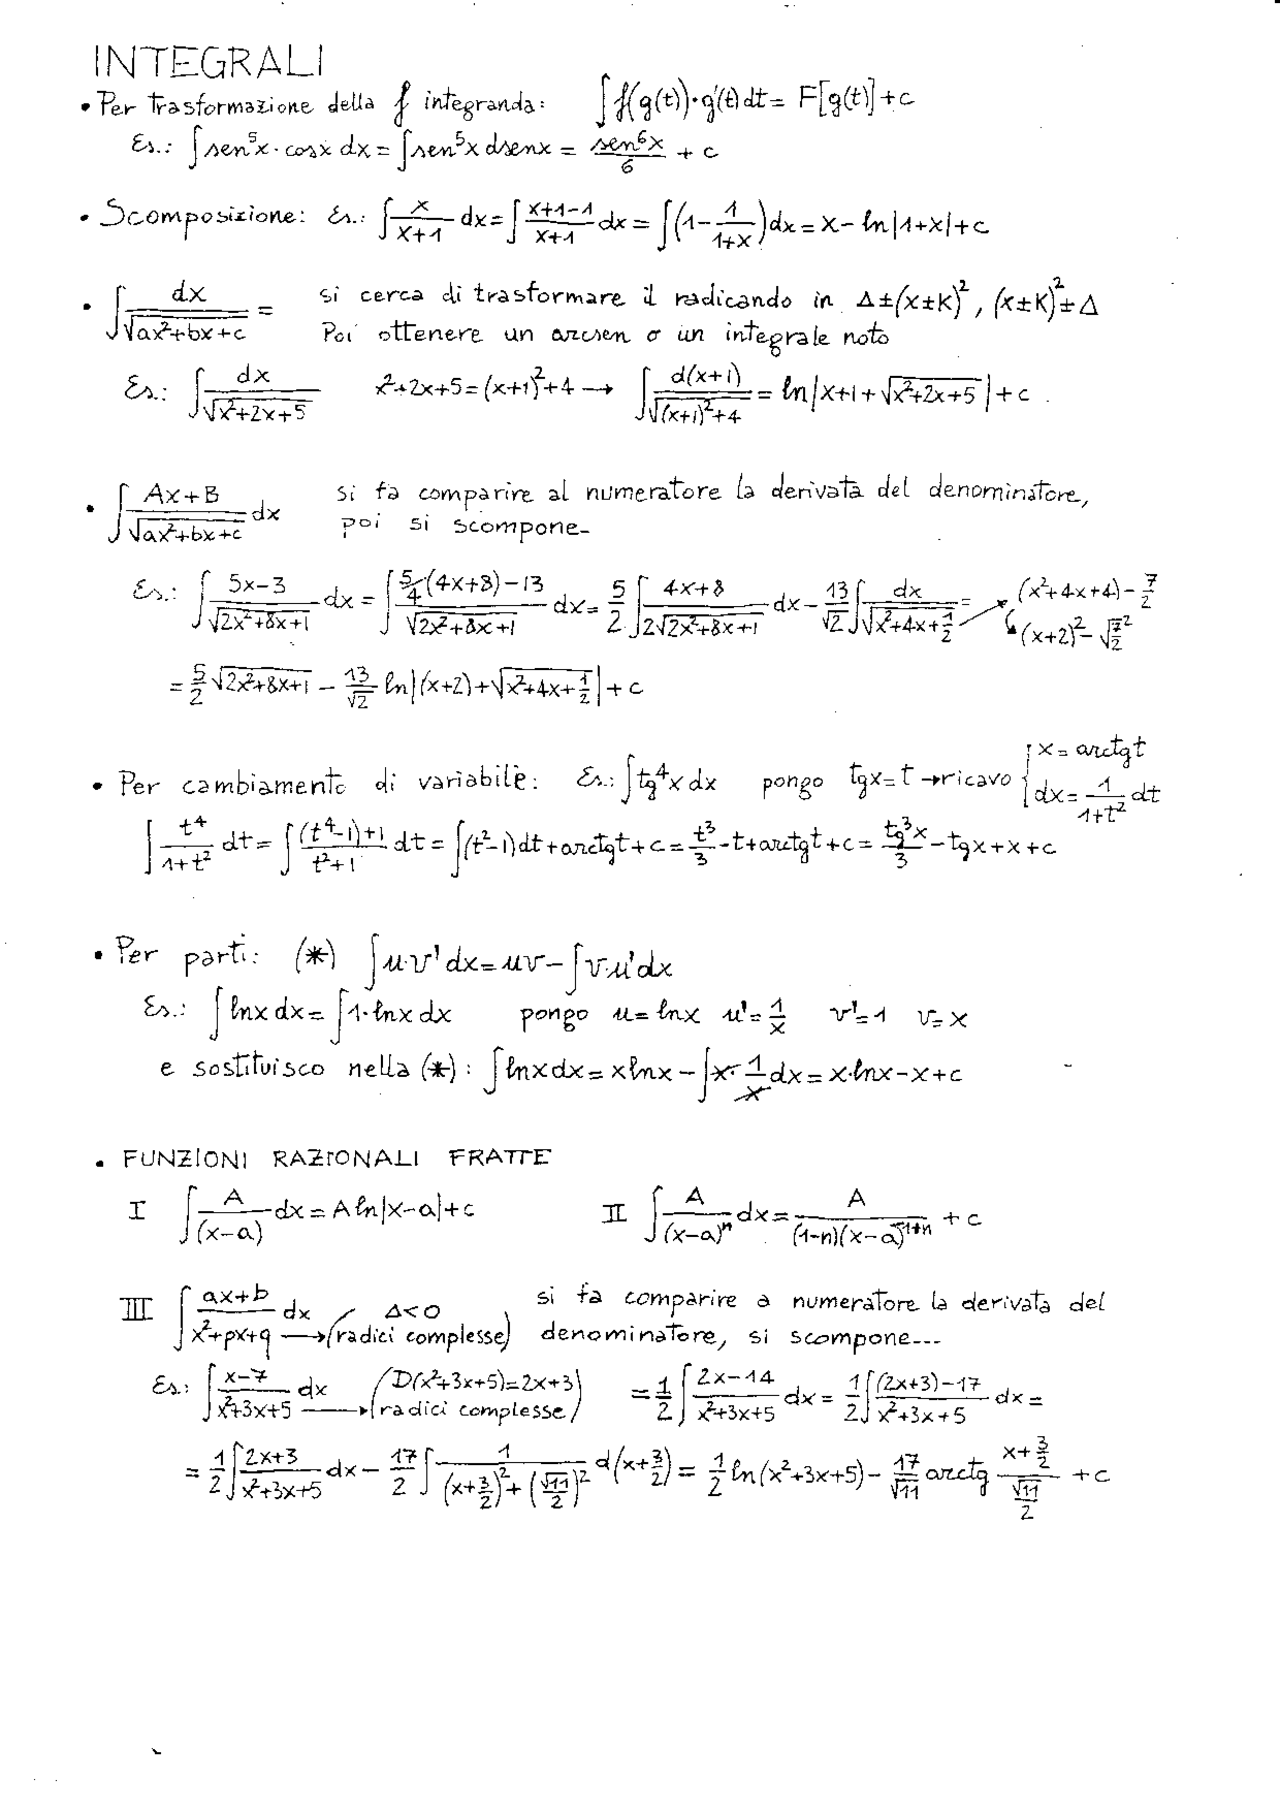 INTEGRALI
• Per trasformazione della f integranda: ∫f(g(t))·g'(t)dt = F[g(t)]+c
Es.: ∫sen⁵x·cosx dx = ∫sen⁵x dsenx = sen⁶x/6 + c
• Scomposizione: Es.: ∫x/(x+1) dx = ∫(x+1-1)/(x+1) dx = ∫(1 - 1/(1+x))dx = x - ln|1+x|+c
• ∫dx/√(ax²+bx+c) = si cerca di trasformare il radicando in Δ±(x±K)², (x±K)²±Δ
Poi ottenere un arcsen o un integrale noto
Es.: ∫dx/√(x²+2x+5) x²+2x+5=(x+1)²+4 → ∫d(x+1)/√((x+1)²+4) = ln|x+1+√(x²+2x+5)|+c.
• ∫(Ax+B)/√(ax²+bx+c) dx si fa comparire al numeratore la derivata del denominatore,
poi si scompone-
Es.: ∫(5x-3)/√(2x²+8x+1) dx = ∫(5/4(4x+8)-13)/√(2x²+8x+1) dx = 5/2 ∫(4x+8)/(2√(2x²+8x+1)) dx - 13/√2 ∫dx/√(x²+4x+1/2) = → (x²+4x+4) - 7/2
↳ (x+2)² - √(7/2)²
= 5/2 √(2x²+8x+1) - 13/√2 ln|(x+2)+√(x²+4x+1/2)|+c
• Per cambiamento di variabile: Es.: ∫tg⁴x dx pongo tgx=t → ricavo { x = arctgt
dx = 1/(1+t²) dt
∫t⁴/(1+t²) dt = ∫((t⁴-1)+1)/(t²+1) dt = ∫(t²-1)dt+arctgt+c = t³/3 - t+arctgt+c = tg³x/3 - tgx+x+c
• Per parti: (*) ∫u·v'dx = uv - ∫v·u'dx
Es.: ∫lnx dx = ∫1·lnx dx pongo u=lnx u'=1/x v'=1 v=x
e sostituisco nella (*): ∫lnxdx = xlnx - ∫x·1/x dx = x·lnx-x+c
• FUNZIONI RAZIONALI FRATTE
I ∫A/(x-a) dx = A ln|x-a|+c II ∫A/(x-a)ⁿ dx = A/((1-n)(x-a)⁻¹⁺ⁿ) + c
III ∫(ax+b)/(x²+px+q) dx → (Δ<0 radici complesse) si fa comparire a numeratore la derivata del
denominatore, si scompone---
Es.: ∫(x-7)/(x²+3x+5) dx → (D(x²+3x+5)=2x+3 radici complesse) = 1/2 ∫(2x-14)/(x²+3x+5) dx = 1/2 ∫((2x+3)-17)/(x²+3x+5) dx =
= 1/2 ∫(2x+3)/(x²+3x+5) dx - 17/2 ∫1/((x+3/2)²+(√11/2)²) d(x+3/2) = 1/2 ln(x²+3x+5) - 17/√11 arctg (x+3/2)/(√11/2) + c